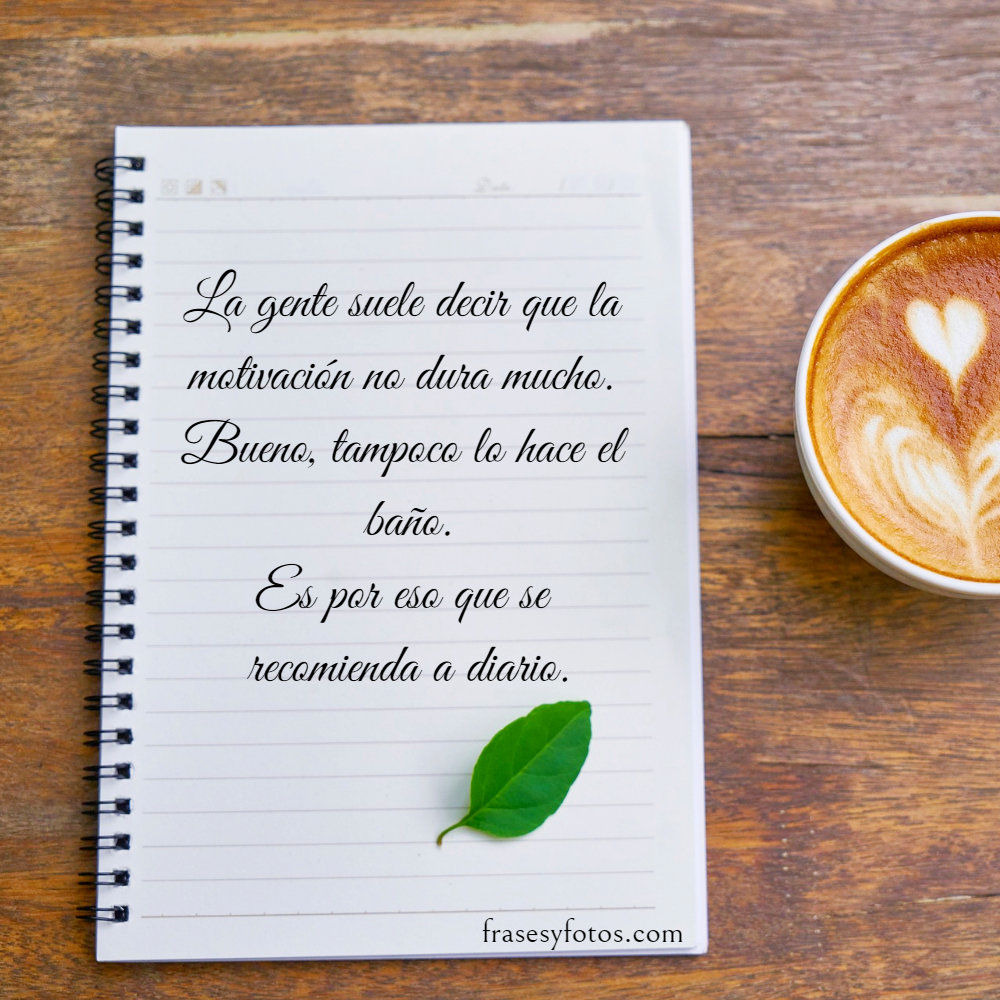 La gente suele decir que la
motivación no dura mucho.
Bueno, tampoco lo hace el
baño.
Es por eso que se
recomienda a diario.
frasesyfotos.com